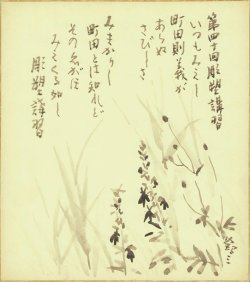 第四十回彫塑講習
いつもみえし
町田則義が
あらぬ
さびしさ
みまかりし
町田とは知れど
その名がほ
みてくる如し
彫塑講習